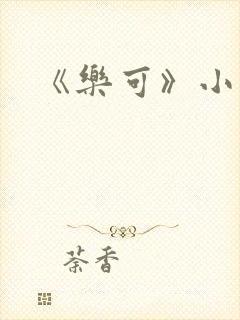 《樂可》小
荼香